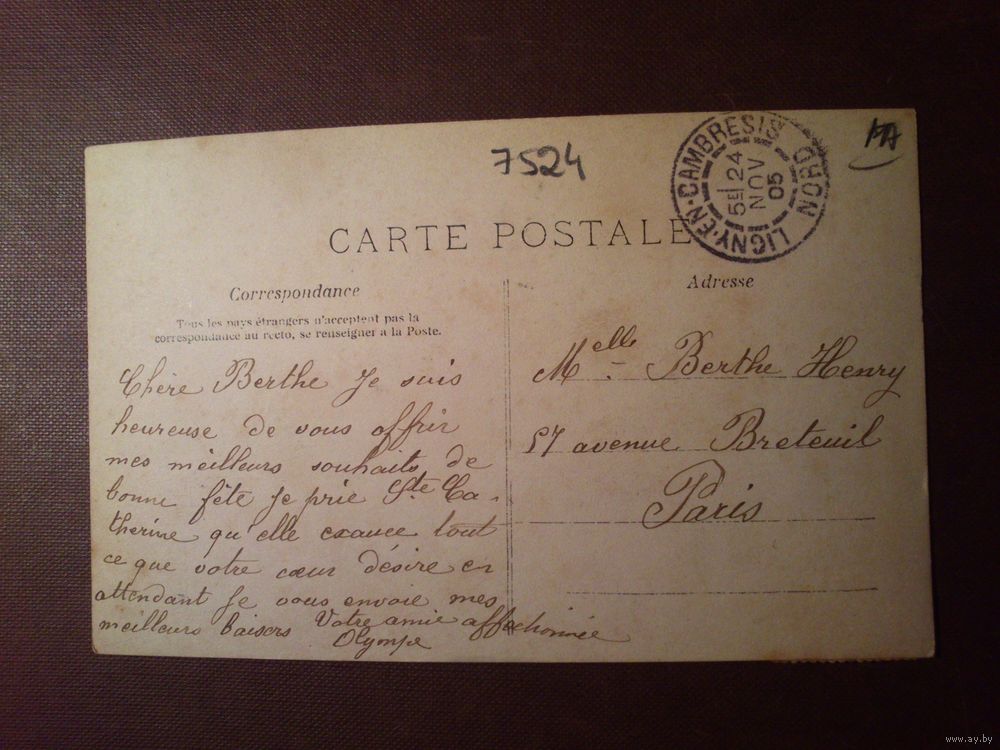 7524
MA
LIGNY-EN-CAMBRESIS NORD
5E 24
NOV
05
CARTE POSTALE
Correspondance
Tous les pays étrangers n'acceptent pas la
correspondance au recto, se renseigner a la Poste.
Adresse
Chère Berthe Je suis
heureuse de vous offrir
mes meilleurs souhaits de
bonne fête Je prie Ste Ca-
therine qu'elle exauce tout
ce que votre cœur désire en
attendant Je vous envoie mes
meilleurs baisers Votre amie affectionnée
Olympe
Melle Berthe Henry
57 avenue Breteuil
Paris
www.ay.by